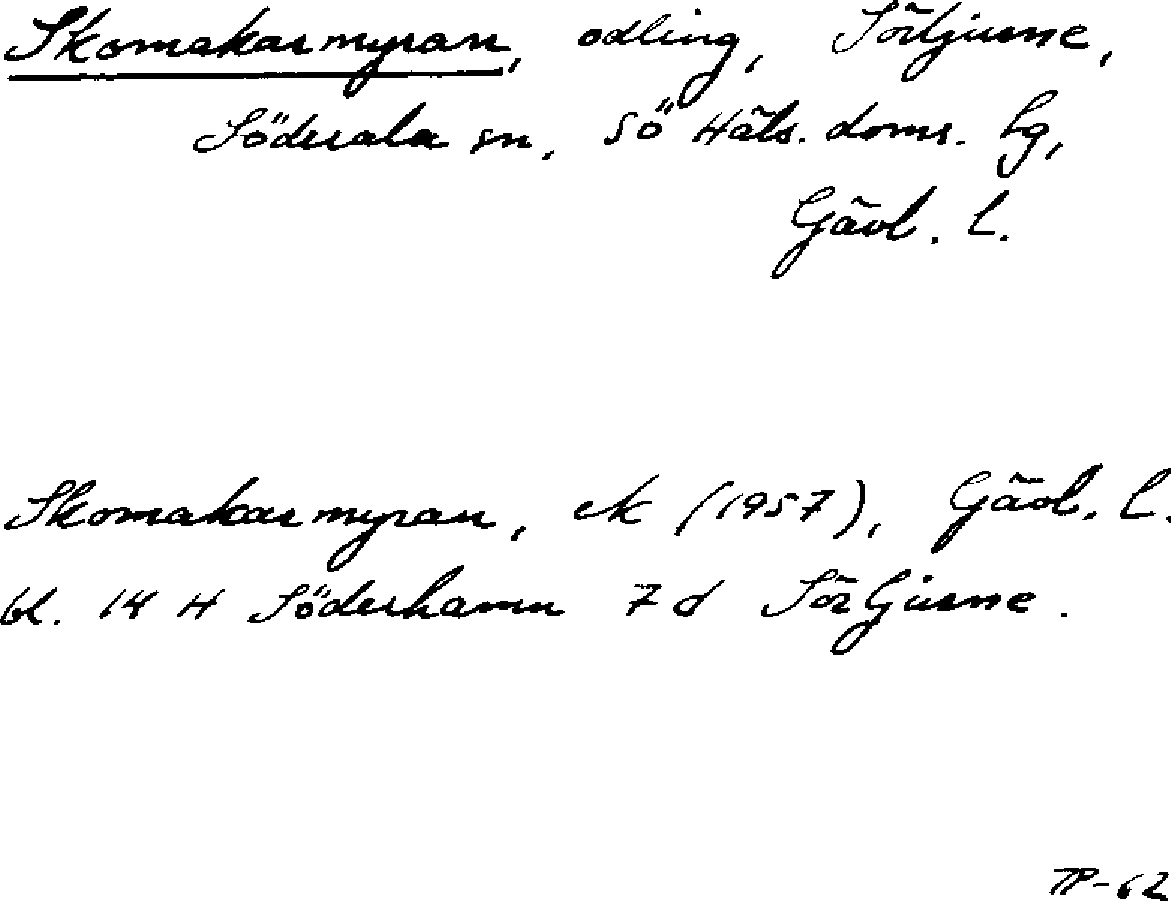 Skomakarmyran, odling, Sörljusne,
Söderala sn, Sö Häls. doms. hg,
Gävl. l.
Skomakarmyran, ek (1957), Gävl. l.
bl. 14 H Söderhamn 7 d Sörljusne.
TP-62